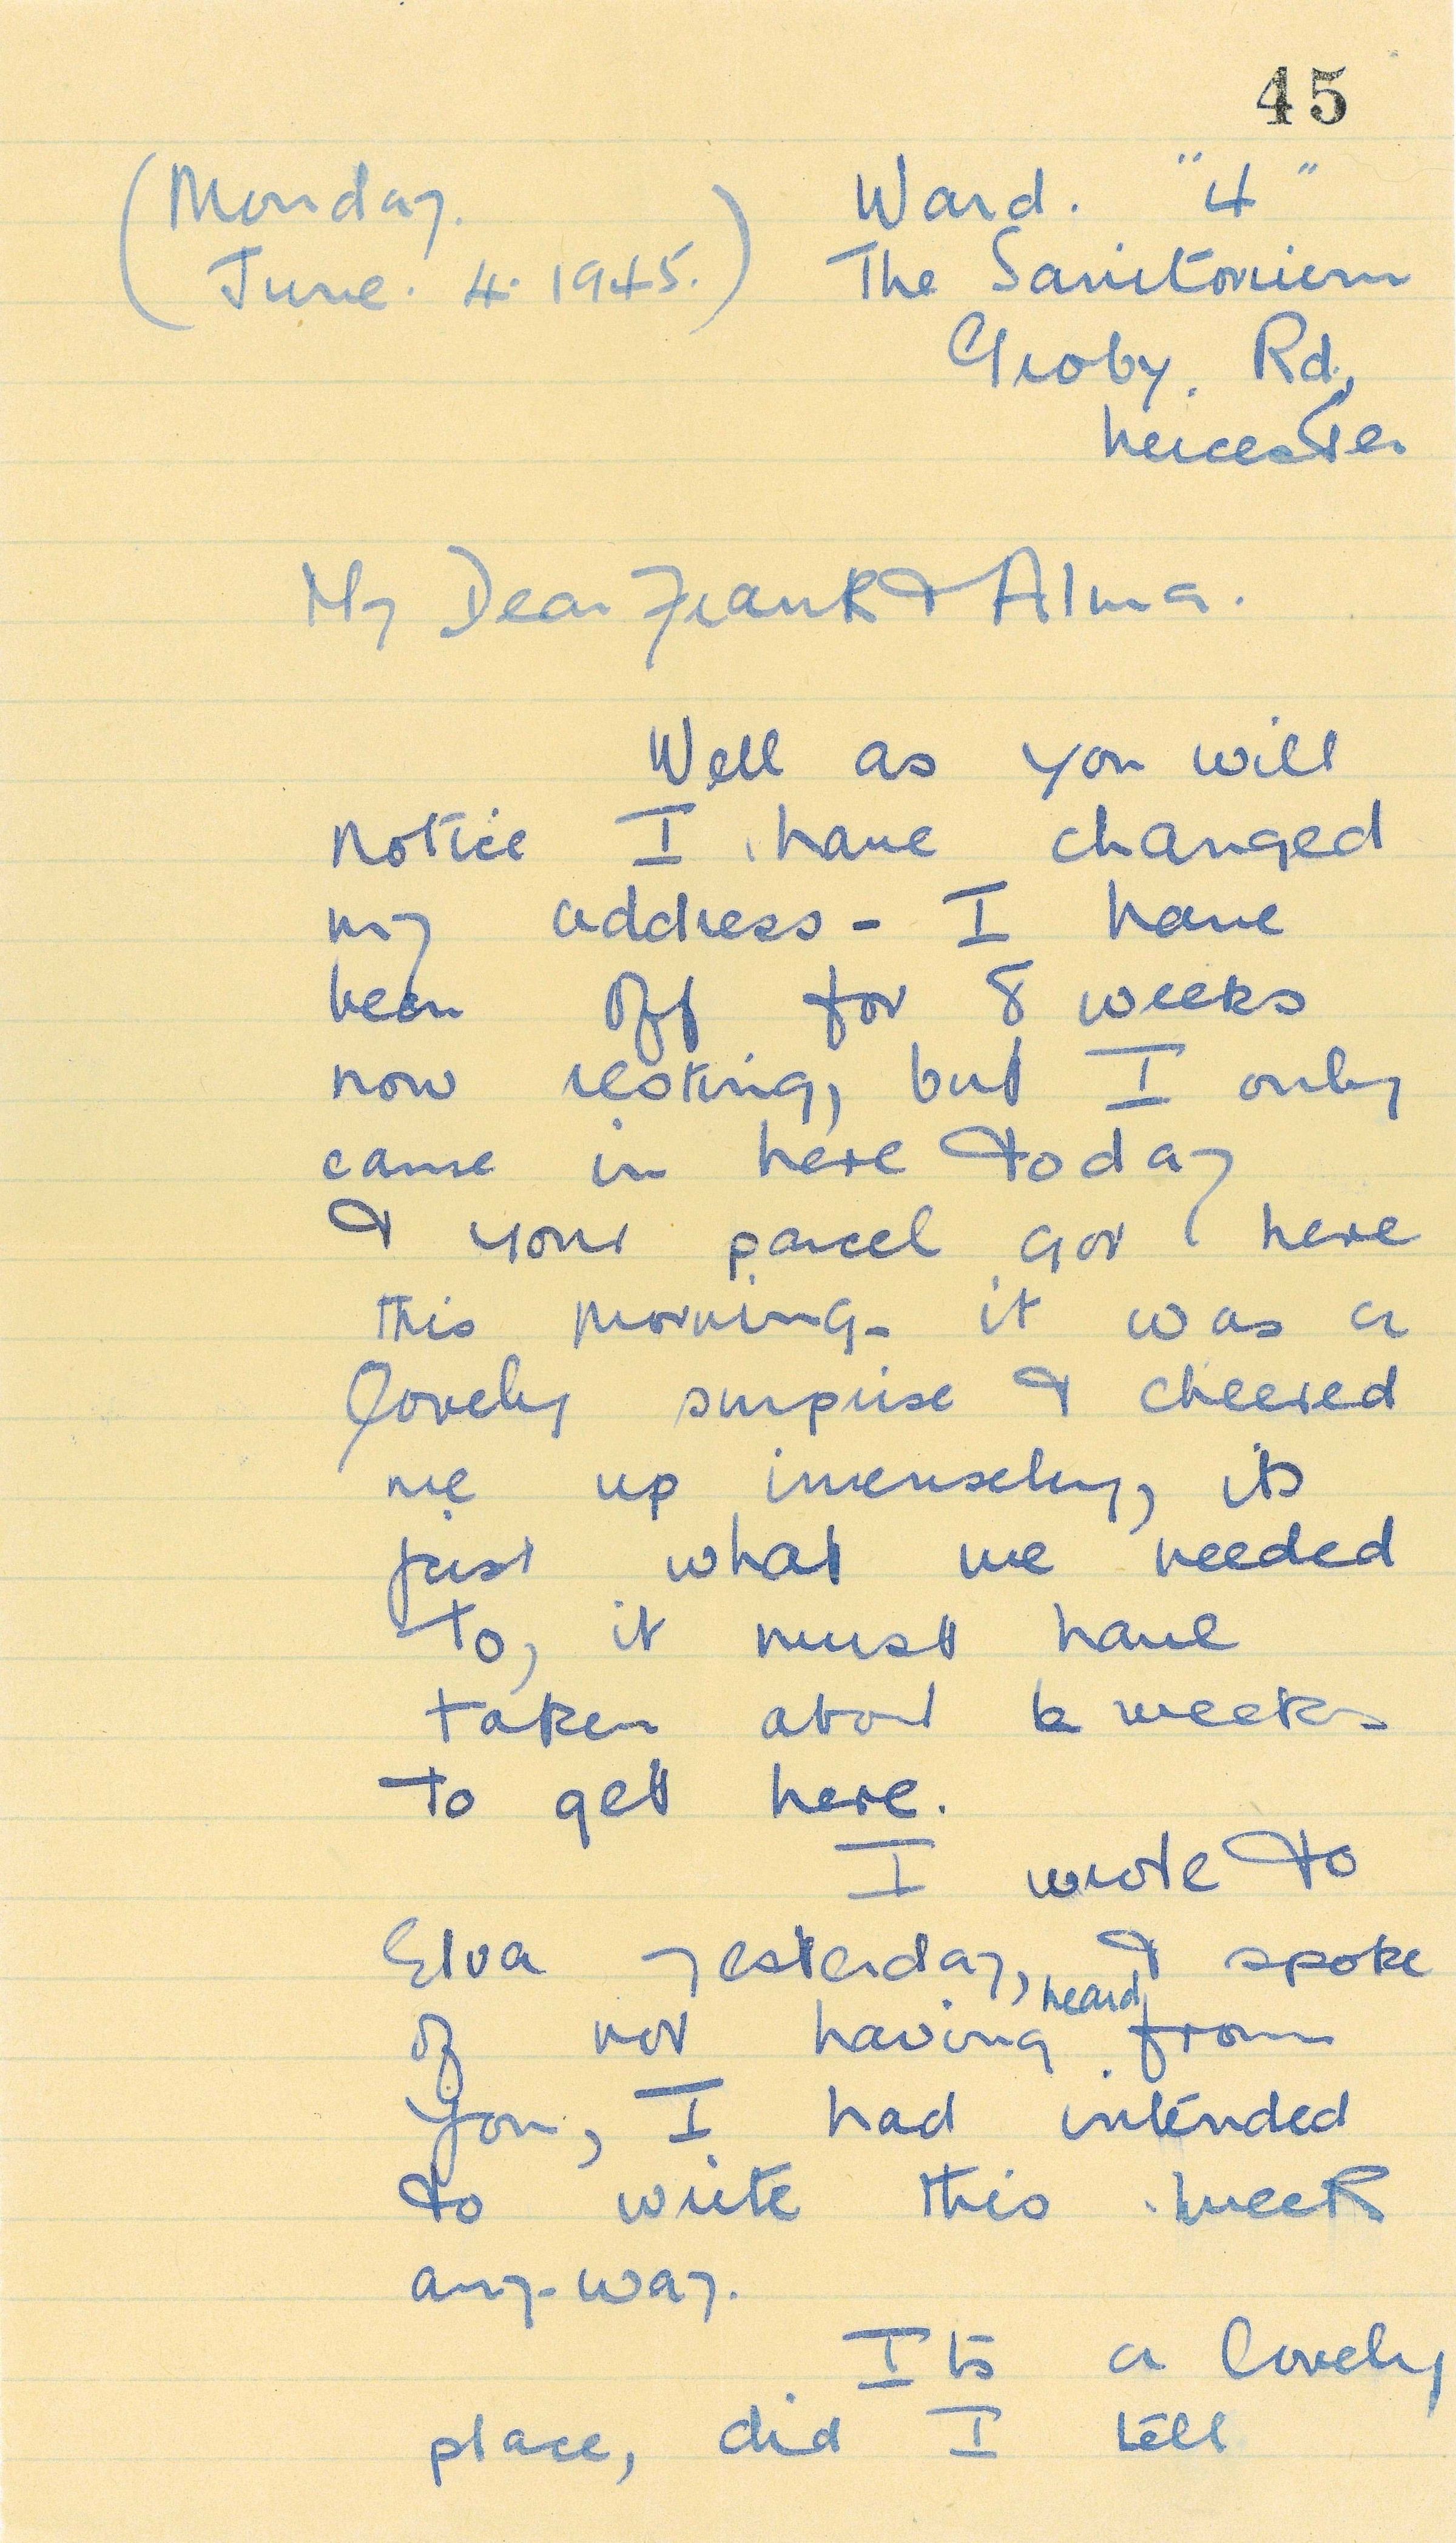 45
(Monday.
June. 4. 1945.)
Ward. "4"
The Sanitorium
Groby. Rd,
Leicester
My Dear Frank & Alma.
Well as you will
notice I have changed
my address - I have
been off for 8 weeks
now resting, but I only
came in here today
& your parcel got here
this morning - it was a
lovely surprise & cheered
me up imensely, its
just what we needed
to, it must have
taken about weeks
to get here.
I wrote to
Elva yesterday, & spoke
of not having heard from
you, I had intended
to write this week
any-way.
Its a lovely
place, did I tell